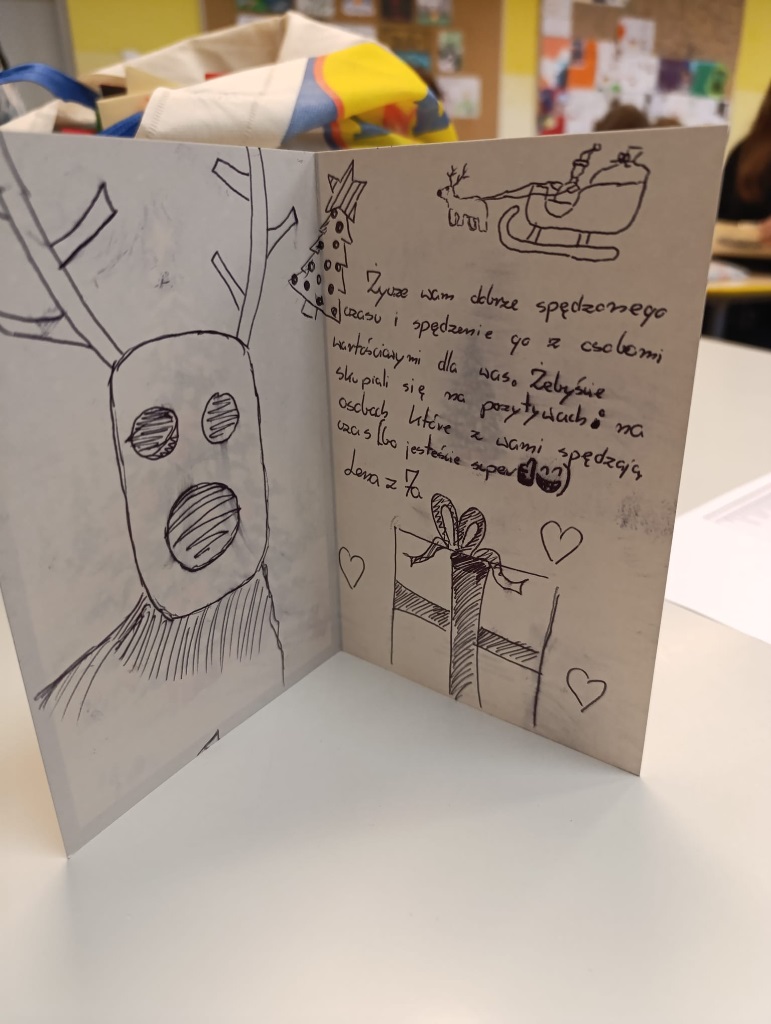 Życzę wam dobrze spędzonego
czasu i spędzenie go z osobami
wartościowymi dla was. Żebyście
skupiali się na pozytywach i na
osobach które z wami spędzają
czas (bo jesteście super )
Lena z 7a